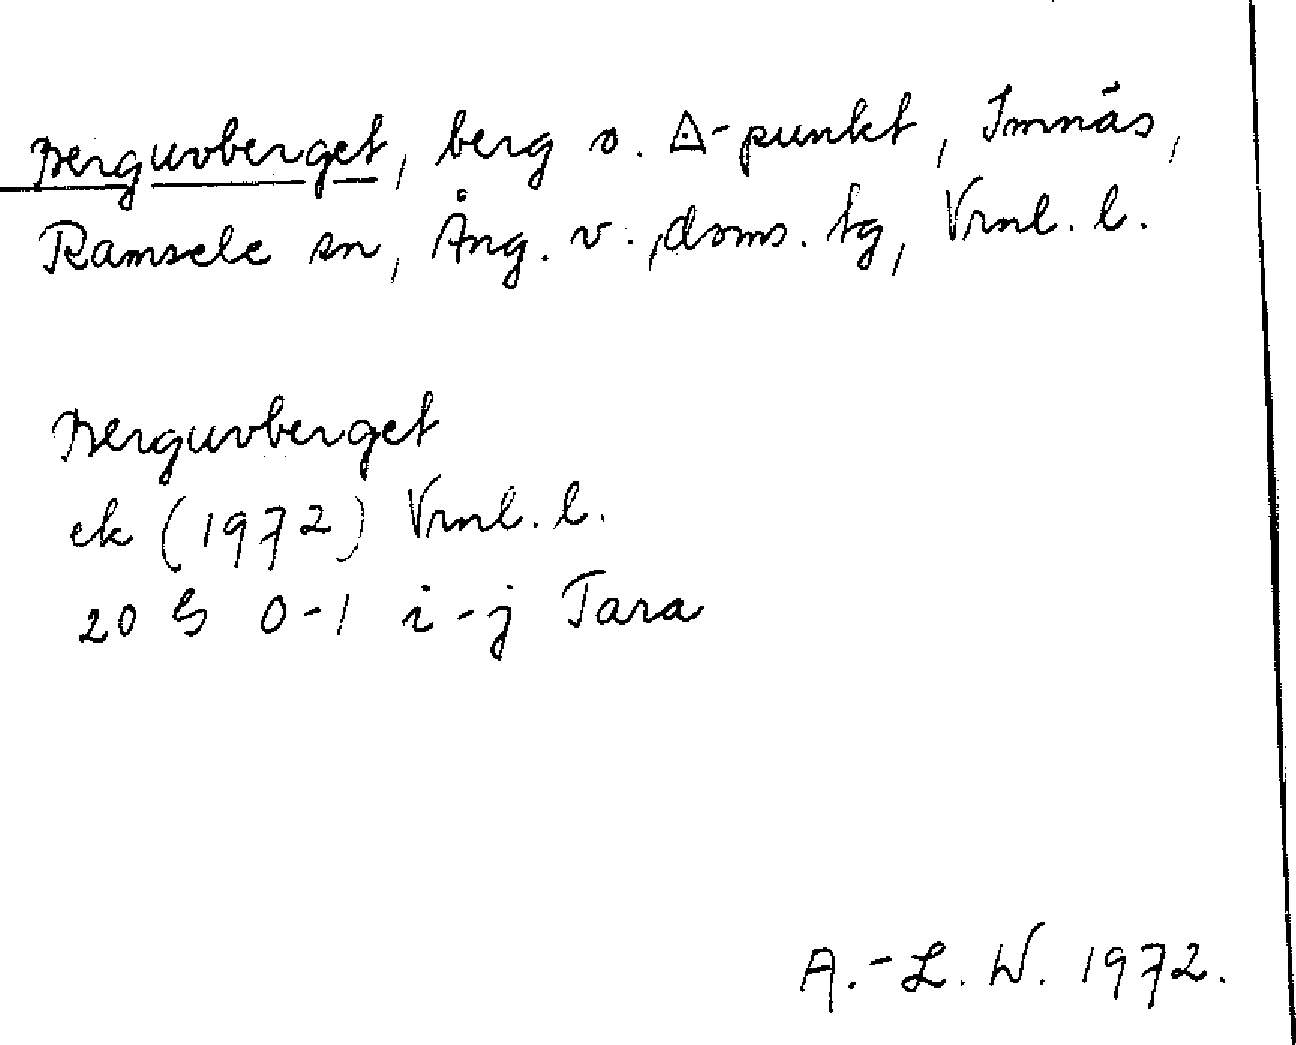 Berguvberget, berg o. △-punkt, Imnäs,
Ramsele sn, Ång. v. doms. tg, Vrnl. l.
Berguvberget
ek (1972) Vrnl. l.
20 G 0-1 i-j Tara
A.-L. W. 1972.